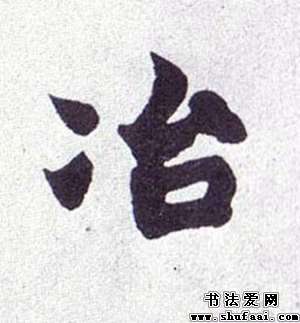 冶
书法爱网
www.shufaai.com